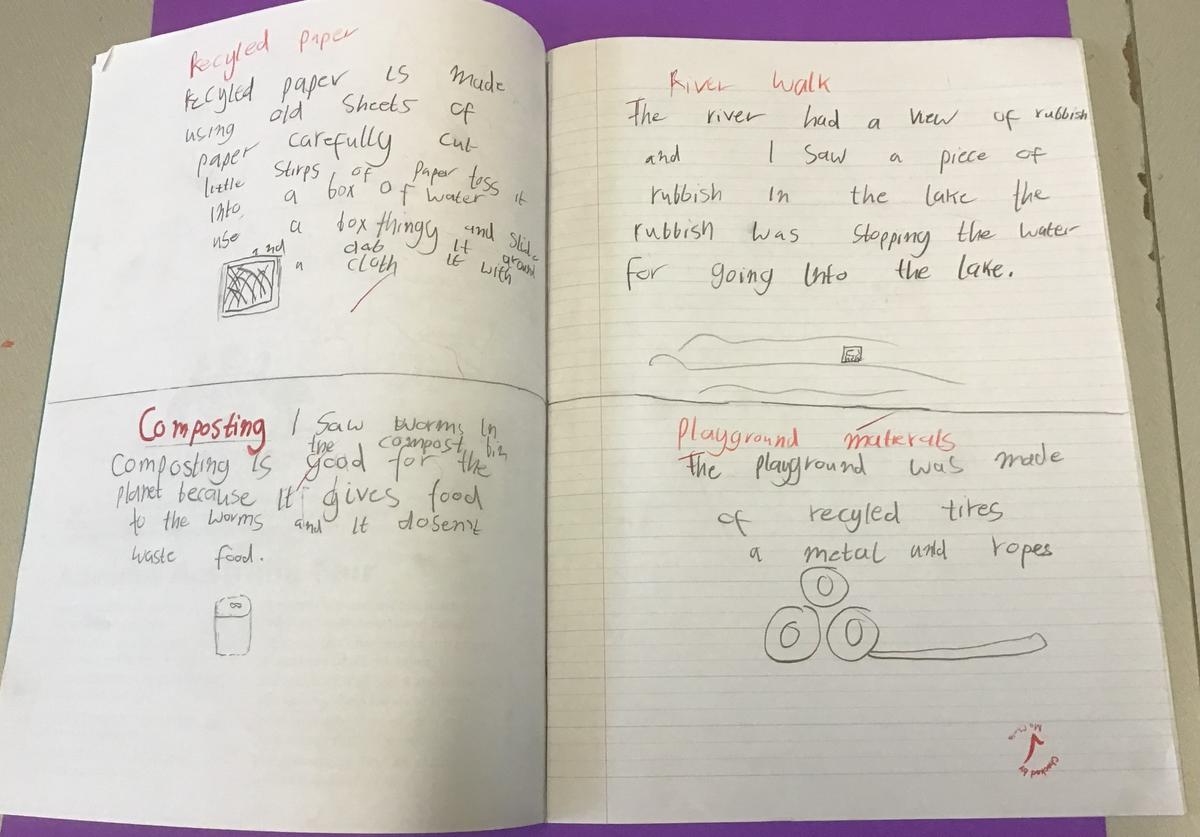 Recyled paper
Recyled paper is made
using old sheets of
paper carefully cut
little stirps of paper toss it
into a box of water
use a box thingy and slide
and dab it around
a cloth it with
Composting I saw worms in
the compost bin
Composting is good for the
planet because it gives food
to the worms and it dosent
waste food.
River walk
The river had a view of rubbish
and I saw a piece of
rubbish in the lake the
rubbish was stopping the water
for going into the lake.
Playground materals
The playground was made
of recyled tires
a metal and ropes
checked by